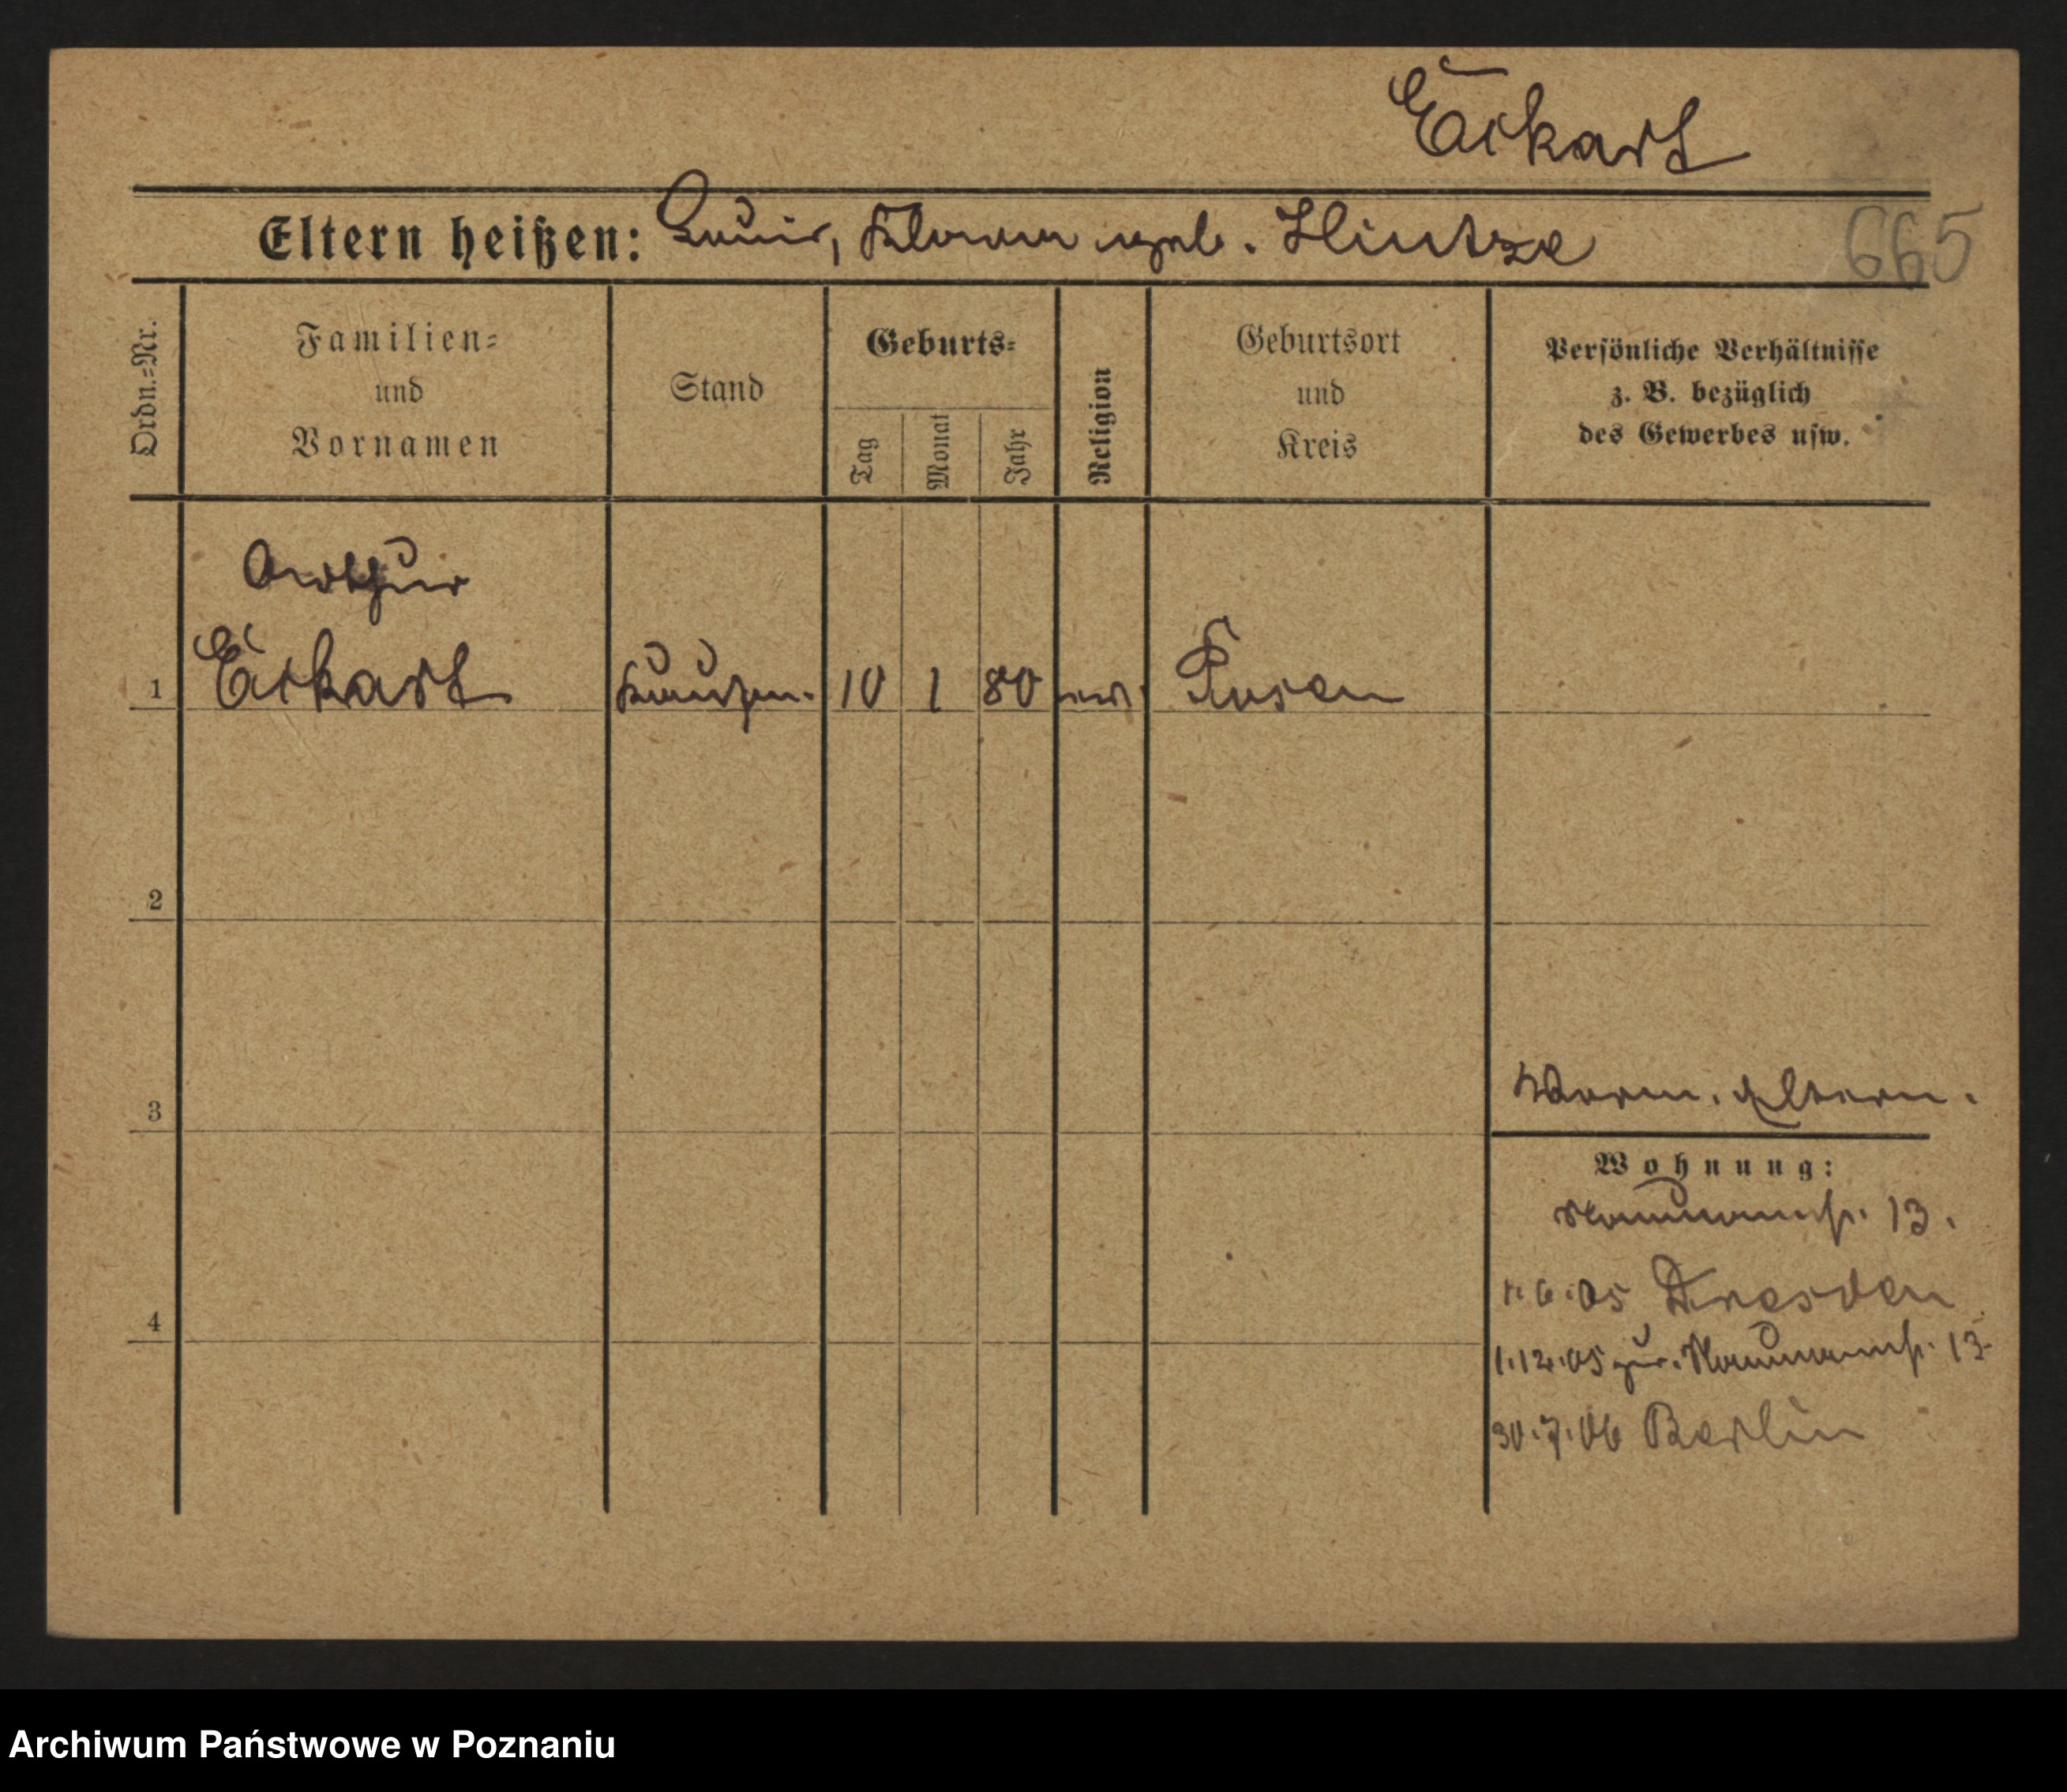 Eckart
Eltern heißen: Louis, Klara geb. Hintze
665
Ordn.=Nr.
Familien=
und
Vornamen
Stand
Geburts=
Tag
Monat
Jahr
Religion
Geburtsort
und
Kreis
Persönliche Verhältnisse
z. B. bezüglich
des Gewerbes usw.
Arthur
1 Eckart Kaufm. 10 1 80 Posen
2
3
Eltern.
Wohnung:
Naumannstr. 13.
1.6.05 Dresden
4
1.12.05 zur. Naumannstr. 13.
30.7.06 Berlin
Archiwum Państwowe w Poznaniu